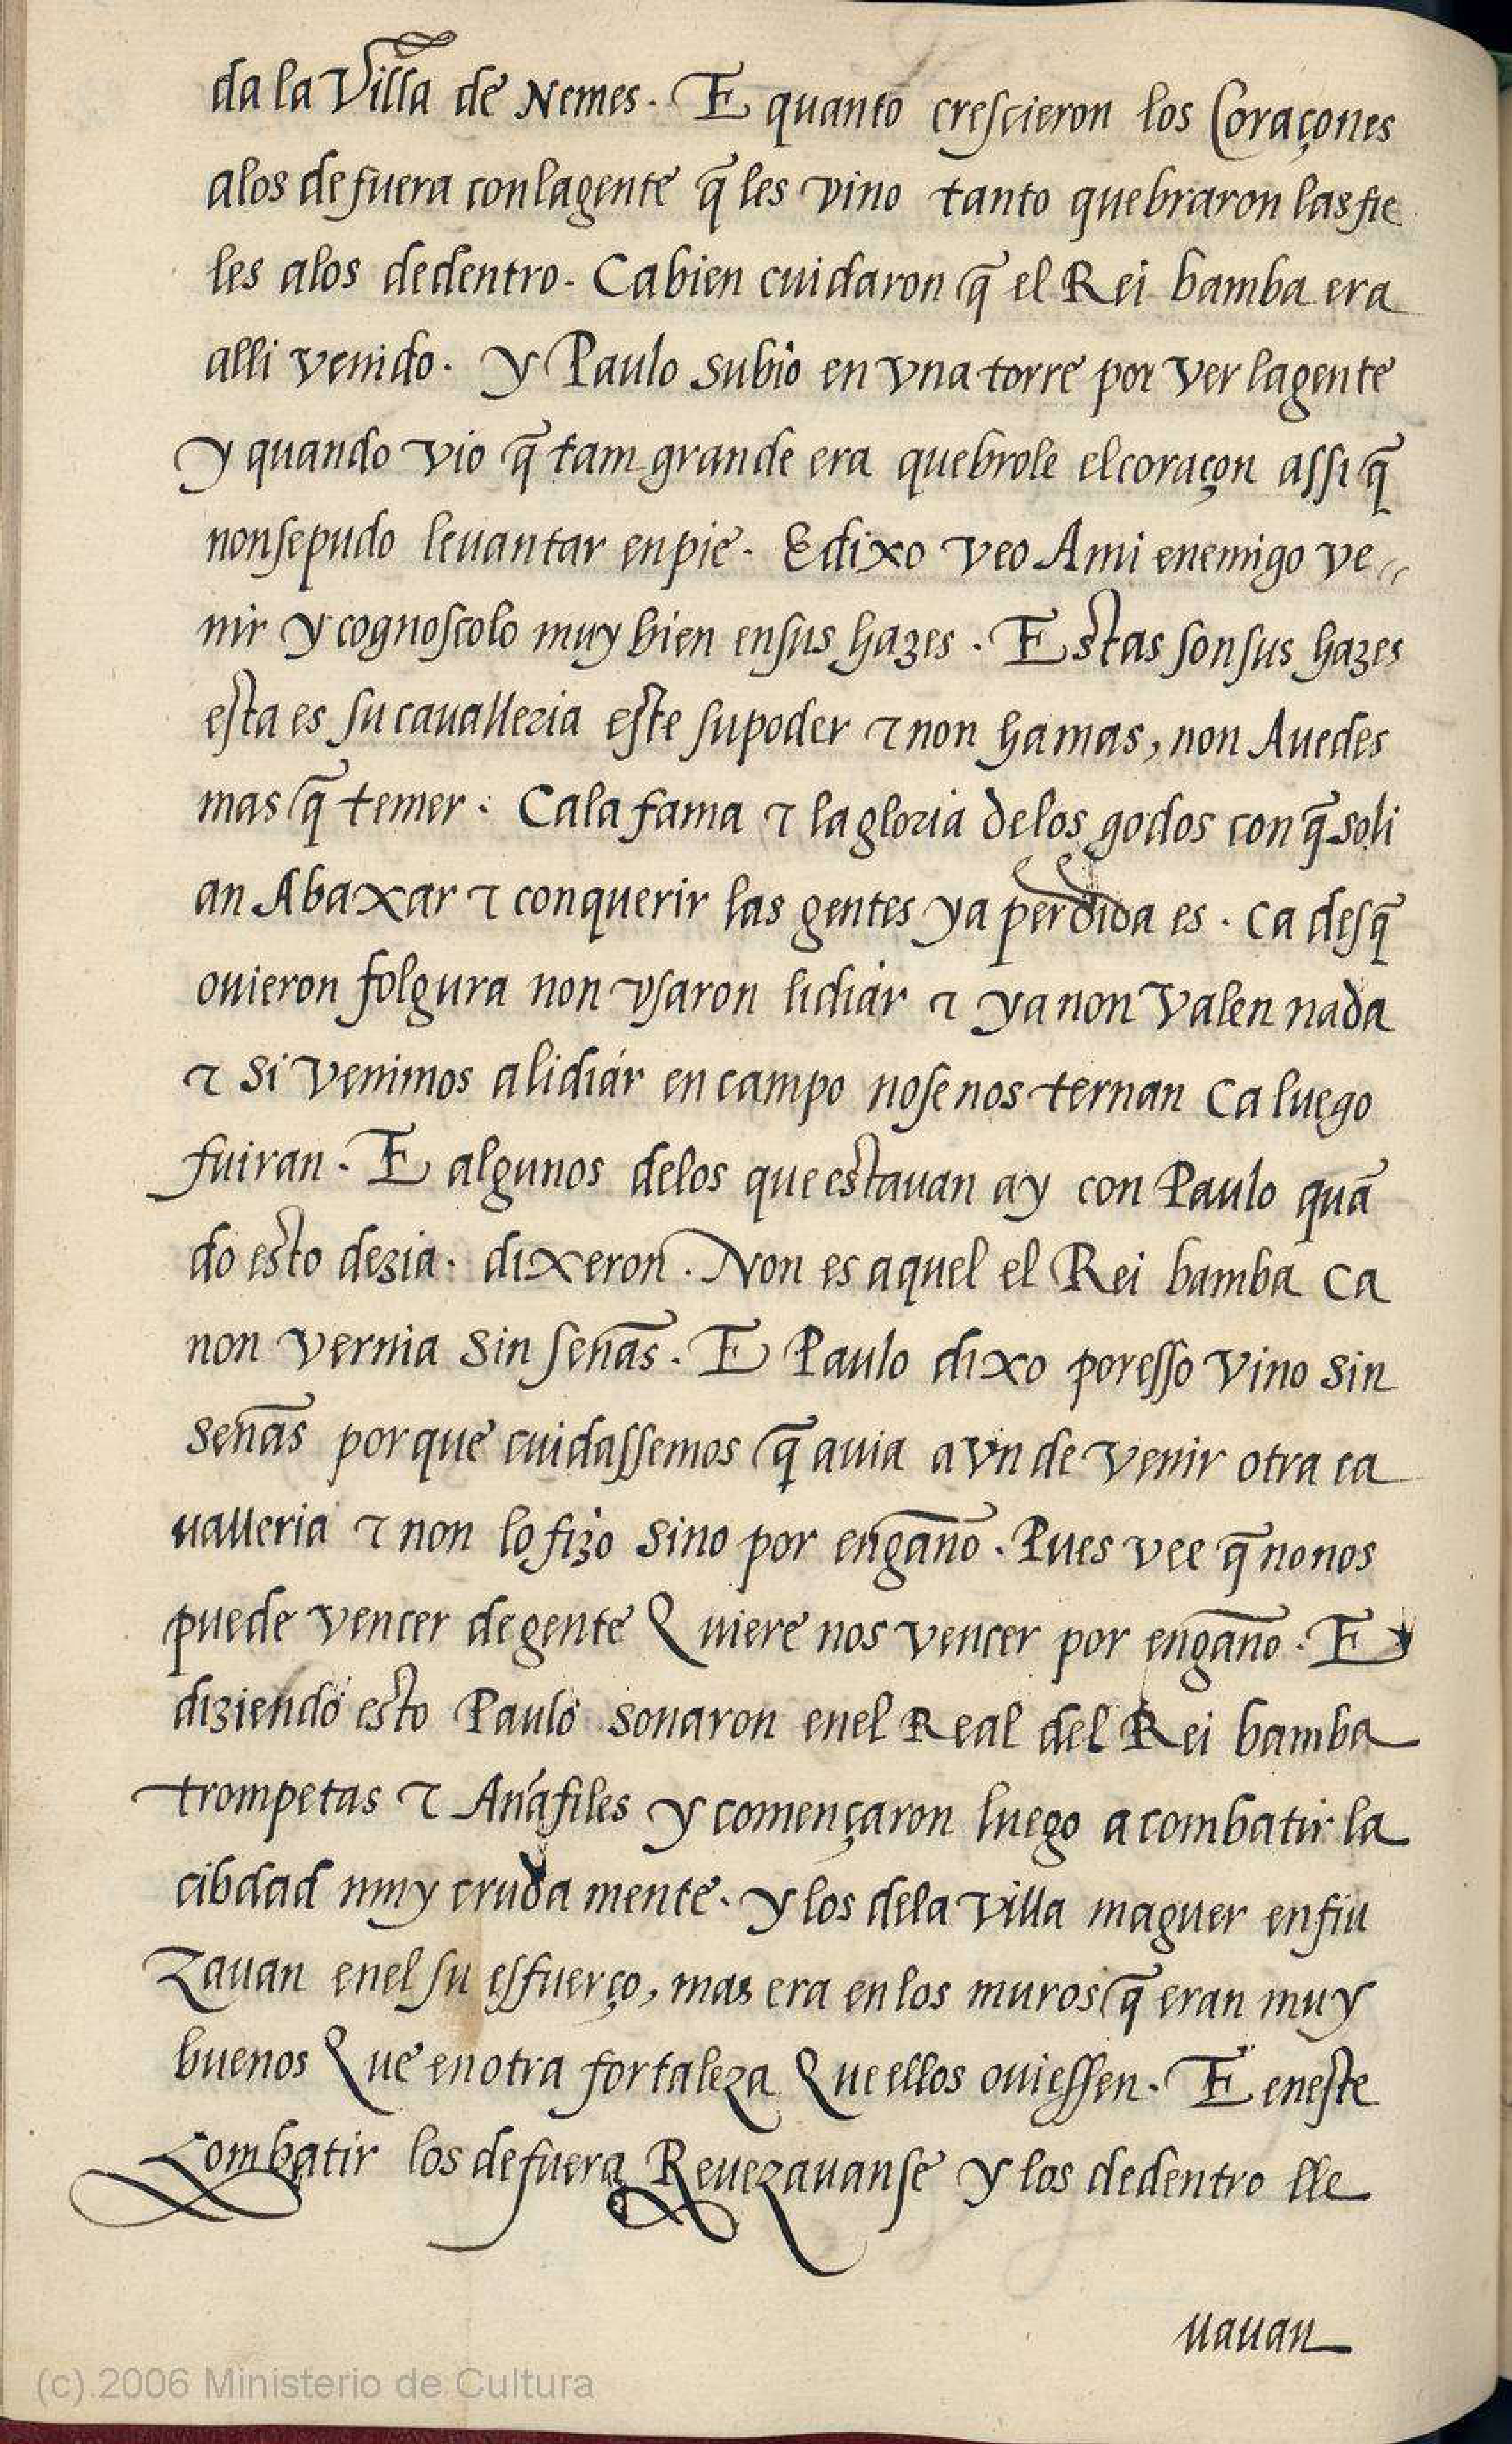 da la Villa de Nemes. E quanto crescieron los Coraçones
alos defuera con lagente q̃ les vino tanto quebraron las fie
les alos dedentro. Cabien cuidaron q̃ el Rei bamba era
alli venido. y Paulo subio en vna torre por ver lagente
y quando vio q̃ tam grande era quebrole el coraçon assi q̃
non sepudo leuantar en pie. E dixo veo Ami enemigo ve
nir y cognoscolo muy bien ensus hazes. Estas son sus hazes
esta es su cavalleria este su poder τ non ha mas, non Auedes
mas q̃ temer. Cala fama τ la gloria delos godos con q̃ soli
an Abaxar τ conquerir las gentes ya perdida es. ca desq̃
ouieron folgura non vsaron lidiar τ ya non Valen nada
τ si venimos alidiar en campo no se nos ternan Ca luego
fuiran. E algunos delos que estauan ay con Paulo quã
do esto dezia. dixeron. Non es aquel el Rei bamba Ca
non vernia sin señas. E Paulo dixo poresso vino sin
señas porque cuidassemos q̃ auia aVn de venir otra ca
ualleria τ non lo fizo sino por engaño. Pues vee q̃ no nos
puede vencer de gente Quiere nos vencer por engaño. E
diziendo esto Paulo sonaron enel Real del Rei bamba
trompetas τ Añafiles y començaron luego a combatir la
cibdad muy cruda mente. y los dela Villa maguer enfiu
Zauan enel su esfuerço, mas era en los muros q̃ eran muy
buenos Que en otra fortaleza Que ellos ouiessen. E eneste
Combatir los defuera Reuezauanse y los dedentro lle
uauan
(c).2006 Ministerio de Cultura